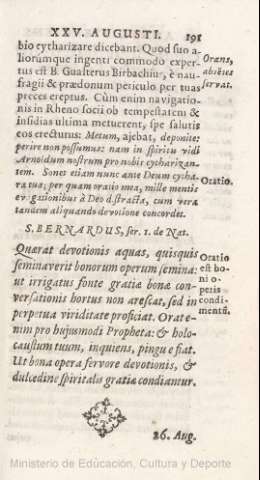 XXV. AUGUSTI. 191
bio cytharizare dicebant. Quod suo a-
liorumque ingenti commodo exper-
tus est B. Gualterus Birbachiu, è nau-
fragii & prædonum periculo per tuas
preces ereptus. Cùm enim navigatio-
nis in Rheno socii ob tempestatem &
insidias ultima metuerent, spe salutis
eos erecturus: Metum, ajebat, deponite;
perire non possumus; nam in spiritu vidi
Arnoldum nostrum pro nobis cytharizan-
tem. Sones etiam nunc ante Deum cytha-
ra tua; per quam oratio mea, mille mentis
evagationibus à Deo distracta, cum vera
tandem aliquando devotione concordet.
Orans,
absens
servat.
Oratio.
S. BERNARDUS, ser. 1. de Nat.
Quærat devotionis aquas, quisquis
seminaverit bonorum operum semina:
ut irrigatus fonte gratiæ bonæ con-
versationis hortus non arescat, sed in
perpetua viriditate proficiat. Orat e-
nim pro hujusmodi Propheta: & holo-
caustum tuum, inquiens, pingue fiat.
Ut bona opera fervore devotionis, &
dulcedine spiritalis gratiæ condiantur.
Oratio
est bo-
ni o-
peris
condi-
mentū.
26. Aug.
Ministerio de Educación, Cultura y Deporte